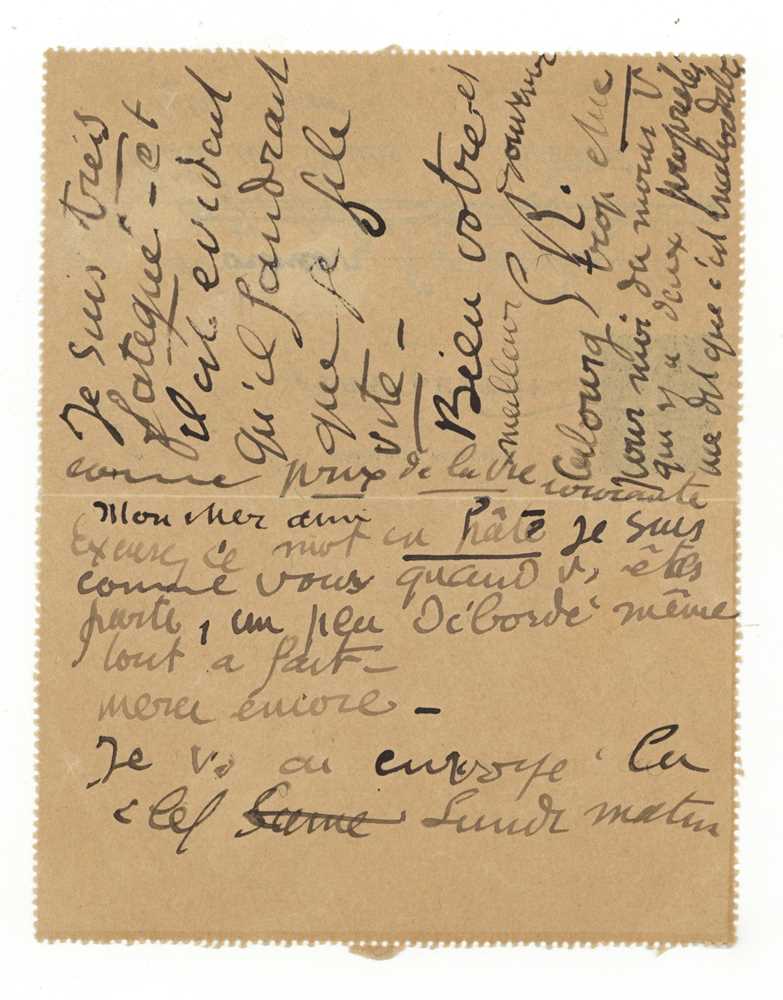 Mon cher ami
Excusez ce mot en hâte Je suis
comme vous quand vs êtes
parti, un peu débordé même
tout a fait –
merci encore –
Je vs ai envoyé la
clef Same Lundi matin
Je suis très
fatigué – et
il est evident
qu'il faudrait
que je file
vite –
Bien votre et
meilleur souvenir
trop chic
pour moi du moins V
qui y a deux propriétés
me dit que c'est inabordable
comme prix de la vie courante